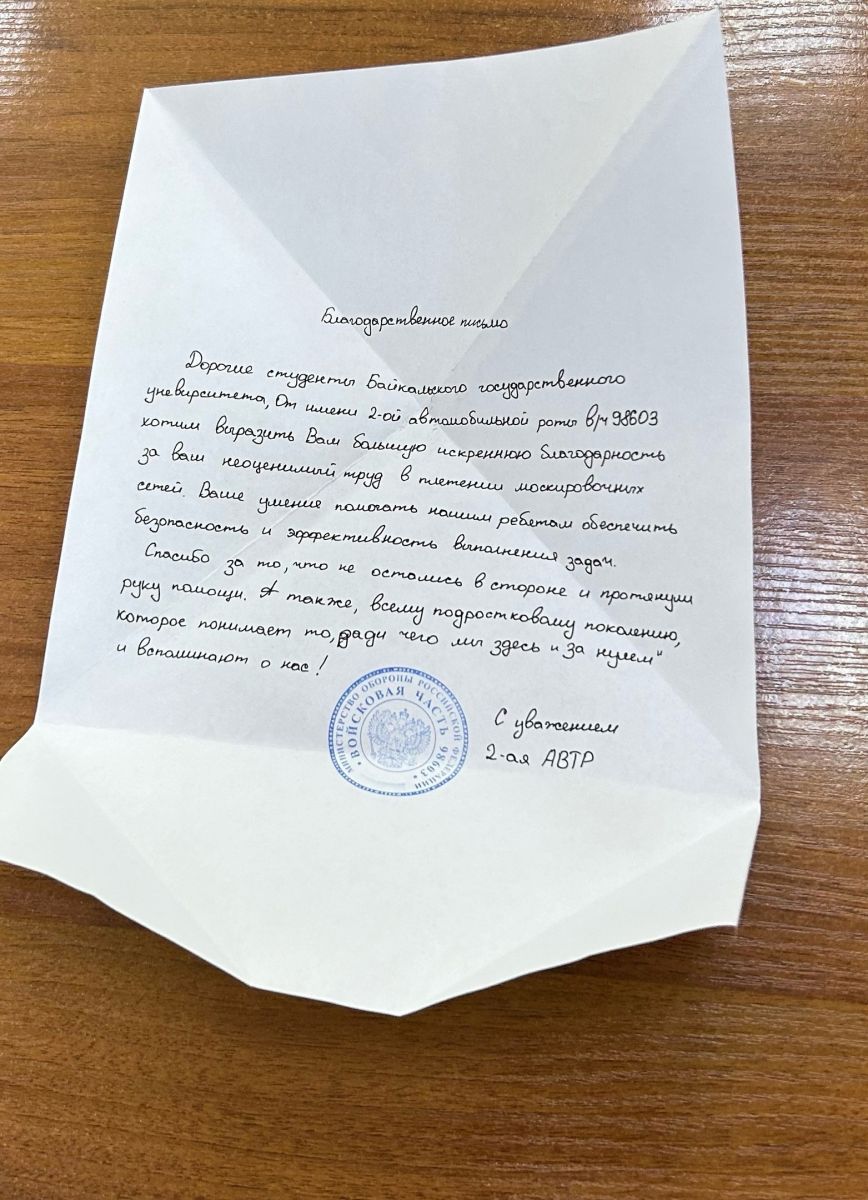 Благодарственное письмо
Дорогие студенты Байкальского государственного
уневирситета, От имени 2-ой автомобильной роты в/ч 98603
хотим выразить Вам большую искреннюю благодарность
за ваш неоценимый труд в плетении москировочных
сетей. Ваше умение помогать нашим ребятам обеспечить
безопасность и эффективность выполнения задач.
Спасибо за то, что не остались в стороне и протянули
руку помощи. А также, всему подростковому поколению,
которое понимает то, ради чего мы здесь и за нулем"
и вспоминают о нас!
МИНИСТЕРСТВО ОБОРОНЫ РОССИЙСКОЙ ФЕДЕРАЦИИ
ВОЙСКОВАЯ ЧАСТЬ 98603
С уважением
2-ая АВТР